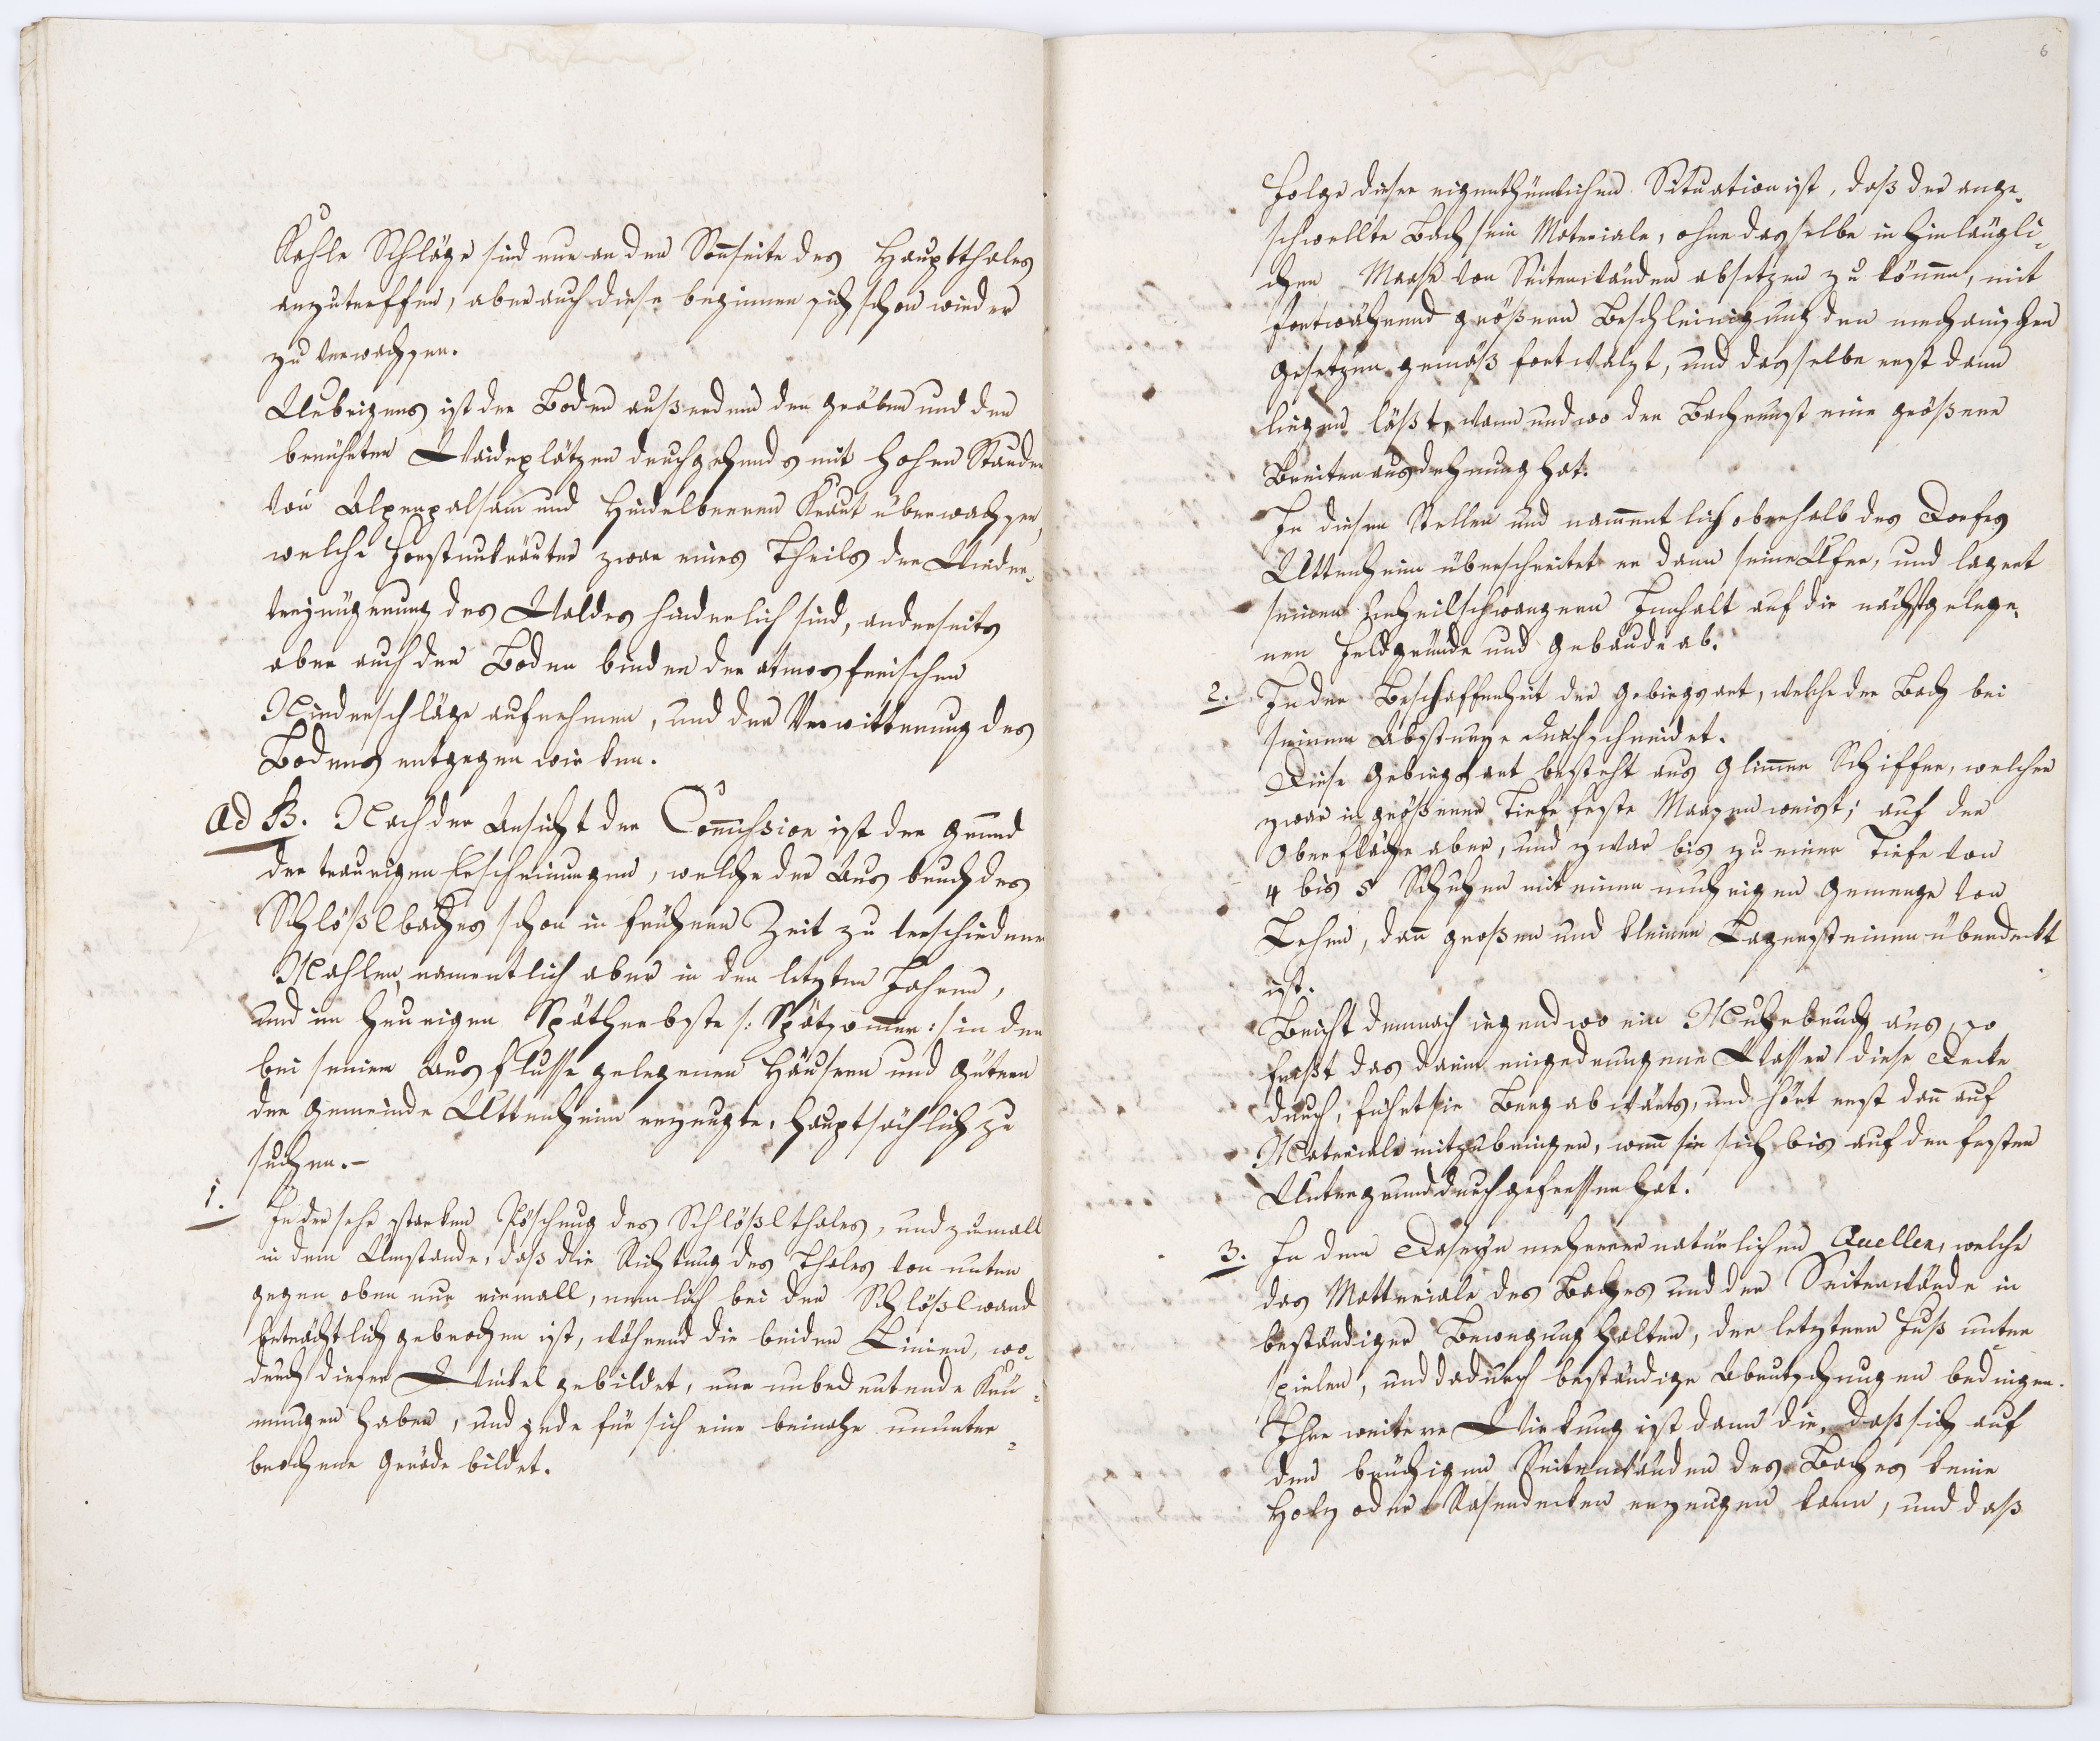 Kahle Schläge sind nur an der Soñseite des Hauptthales
anzutreffen, aber auch diese beginnen sich schon wieder
zu verwachsen.
Uebrigens ist der Boden außer dem den Gräben und den
berührten Waideplätzen durchgehends mit hohen Stauden
von Alpenpalsam und Heidelbeeren Kraut überwachsen,
welche Forstunkräuter zwar eines Theils der Wieder-
verjüngerung des Waldes hinderlich sind, anderseits
aber auch den Boden binden den atmosferischen
Niederschläge aufnehmen, und der Verwitterung des
Bodens entgegen wirken.
ad B. Nach der Ansicht der Com̃ission ist der Grund
der traurigen Erscheinungen, welche der Ausbruch des
Schlößlbaches schon in früherer Zeit zu verschiedenen
Mahlen, namentlich aber in den letzten Jahren,
und im heurigen Spätherbste /: Spätsom̃er :/ in den
bei seinem Ausflusse gelegenen Häusern und Gütern
der Gemeinde Uttenheim erzeugte, hauptsächlich zu
suchen.-
1. In der sehr starken Böschung des Schlößlthales, und zumall
in dem Umstande, daß die Richtung des Thales von unten
gegen oben nur einmall, nemlich bei der Schlößlwand
beträchtlich gebrochen ist, während die beiden Linien, wo-
durch dieser Winkel gebildet, nur unbedeutende Krü-
mungen haben, und jede für sich eine beinahe ununter-
brochene Gerade bildet.
6
Folge dieser eigenthümlichen Situation ist, daß der ange-
schwellte Bach sein Materiale, ohne dasselbe in hinlängli-
chen Maaße von Seitenwänden absetzen zu können, mit
fortwährend größern Beschleinigung den mechanischen
Gesetzen gemäß fortwälzt, und dasselbe erst dann
liegen läßt, wann und wo der Bachrunst eine größere
Breitenausdehnung hat.
In diesen Stellen und nammentlich oberhalb des Dorfes
Uttenheim überschreitet er dann seine Ufer, und lagert
seinen unheilschwangern Innhalt auf die nächstgelege-
nen Feldgründe und Gebäude ab.
2. In der Beschaffenheit der Gebirgsart, welche der Bach bei
seinem Absturze durchschneidet.
Diese Gebirgsart besteht aus Glim̃er Schiffer, welcher
zwar in größerer Tiefe feste Massen weist; auf der
Oberfläche aber, und zwar bis zu einer Tiefe von
4 bis 5 Schuhen mit einem muhrigen Gemenge von
Lehm, dañ großen und kleinen Lagersteinen überdekt
ist.
Bricht demnach irgendwo ein Muhrbruch aus, so
freßt das darin eingedrungene Wasser diese Decke
durch, führt sie Berg abwärts, und hört erst dañ auf
Materiale mitzubringen, weñ sie sich bis auf den festen
Untergrund durchgefressen hat.
3. In dem Daseyn mehrerer natürlichen Quellen, welche
das Matteriale des Baches und der Seitenwände in
beständiger Bewegung halten, der letztern Fuß unter
spielen, und dadurch beständige Abrutschungen bedingen.
Ihre weitere Wirkung ist dann die, daß sich auf
den brüchigen Seitenwänden des Baches keine
Holz oder Rasendecken erzeugen kann, und daß